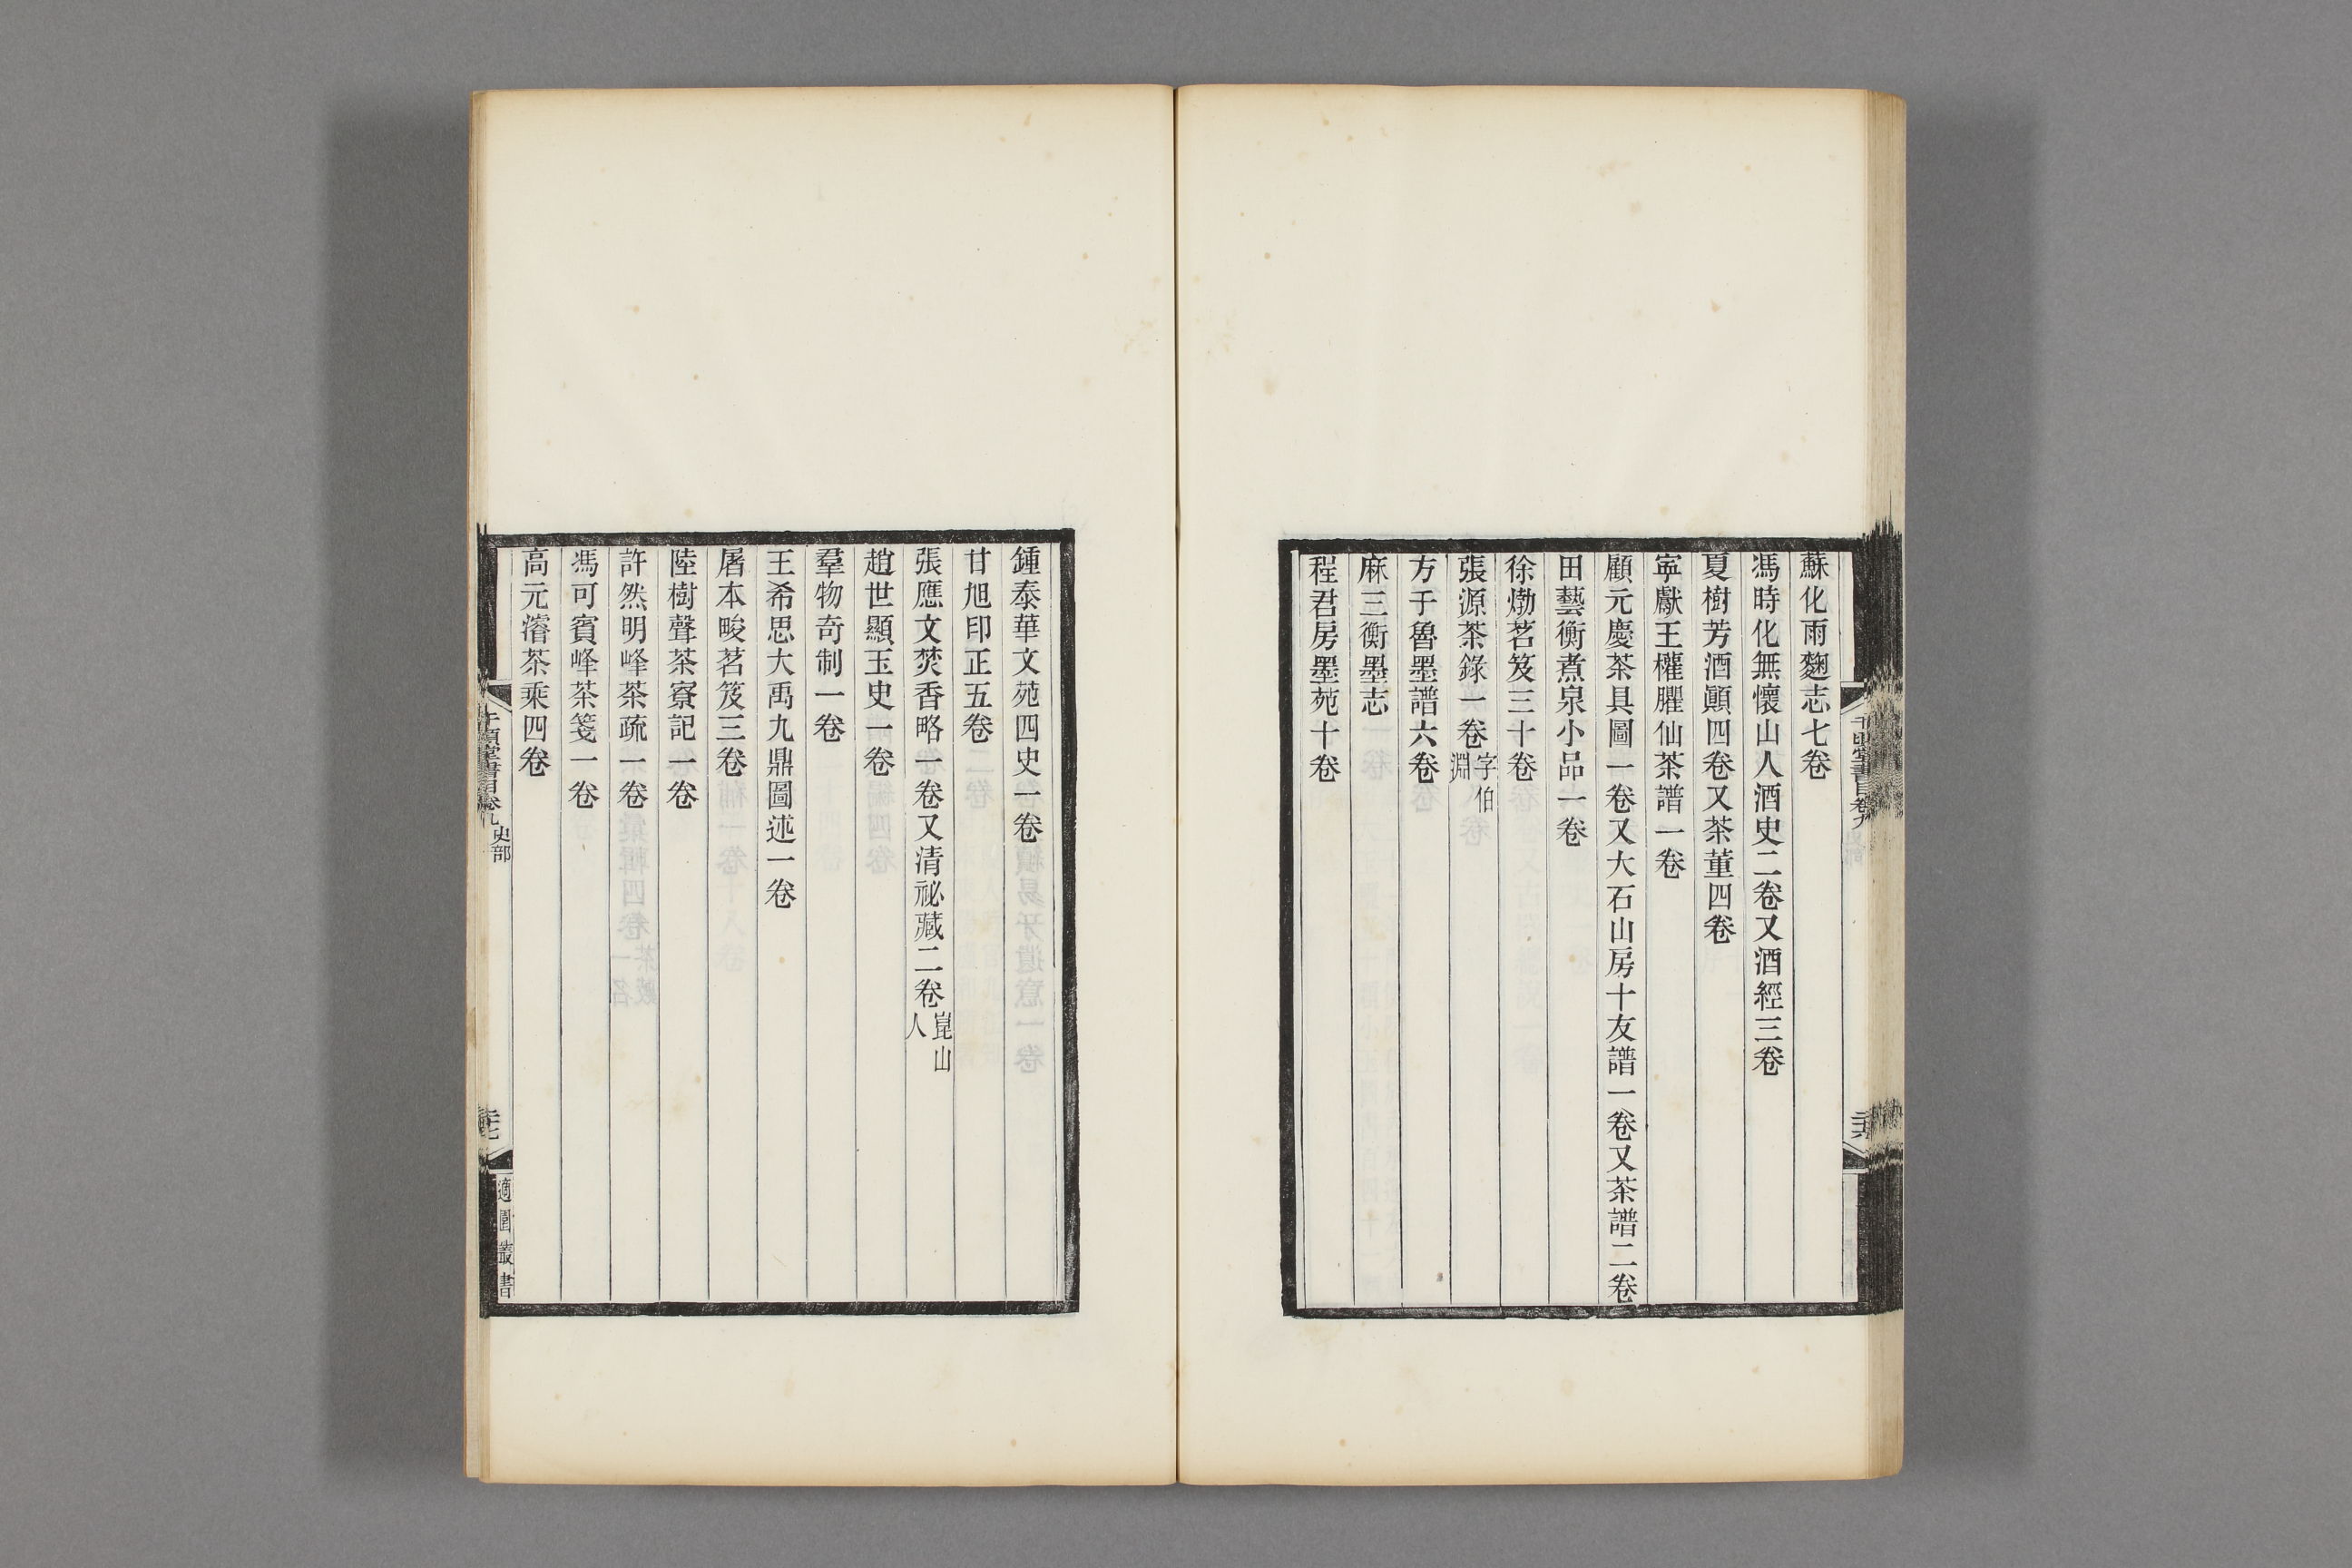 千頃堂書目卷九
蘇化雨麴志七卷
馮時化無懷山人酒史二卷又酒經三卷
夏樹芳酒顚四卷又茶董四卷
寧獻王權臞仙茶譜一卷
顧元慶茶具圖一卷又大石山房十友譜一卷又茶譜二卷
田藝衡煮泉小品一卷
徐𤊹茗笈三十卷
張源茶錄一卷字伯淵
方于魯墨譜六卷
麻三衡墨志
程君房墨苑十卷
鍾泰華文苑四史一卷
甘旭印正五卷
張應文焚香略一卷又清祕藏二卷崑山人
趙世顯玉史一卷
羣物奇制一卷
王希思大禹九鼎圖述一卷
屠本畯茗笈三卷
陸樹聲茶寮記一卷
許然明峰茶疏一卷
馮可賓峰茶箋一卷
高元濬茶乘四卷
千頃堂書目卷九 史部
適園叢書